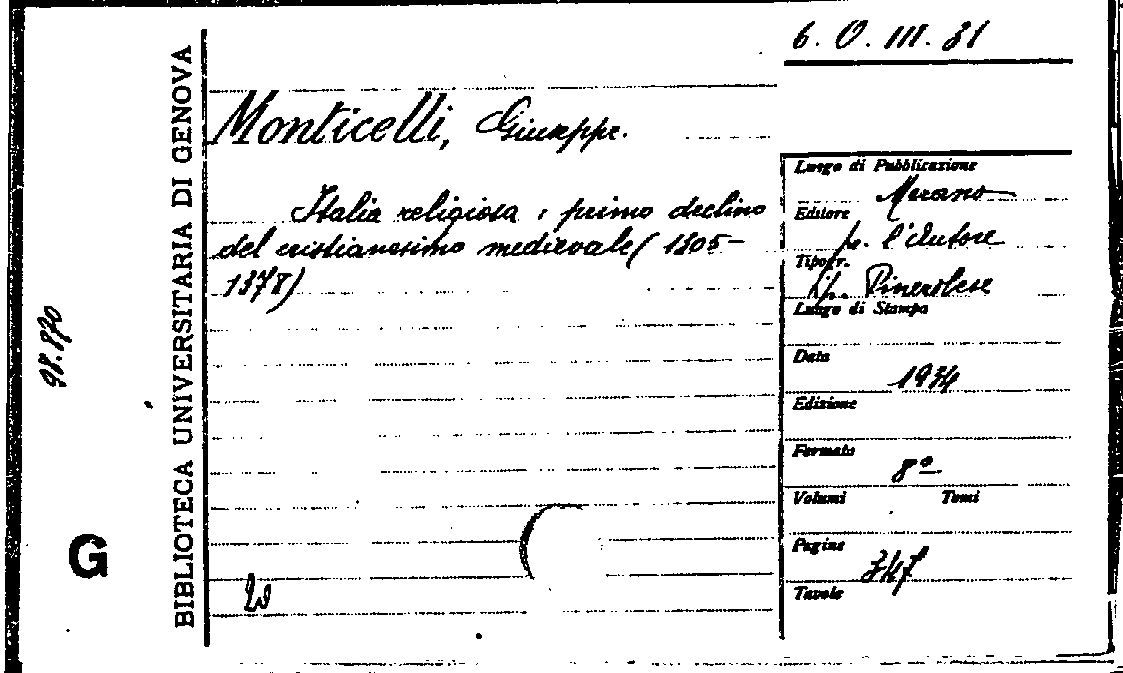 6. O. III. 31
BIBLIOTECA UNIVERSITARIA DI GENOVA
Monticelli, Giuseppe.
Italia religiosa : primo declino
del cristianesimo medievale (1305-
1378)
98.870
G
Luogo di Pubblicazione
Merano
Editore
p. l'Autore
Tipogr.
Tip. Pinerolese
Luogo di Stampa
Data
1934
Edizione
Formato
8º
Volumi Tomi
Pagine
347
Tavole